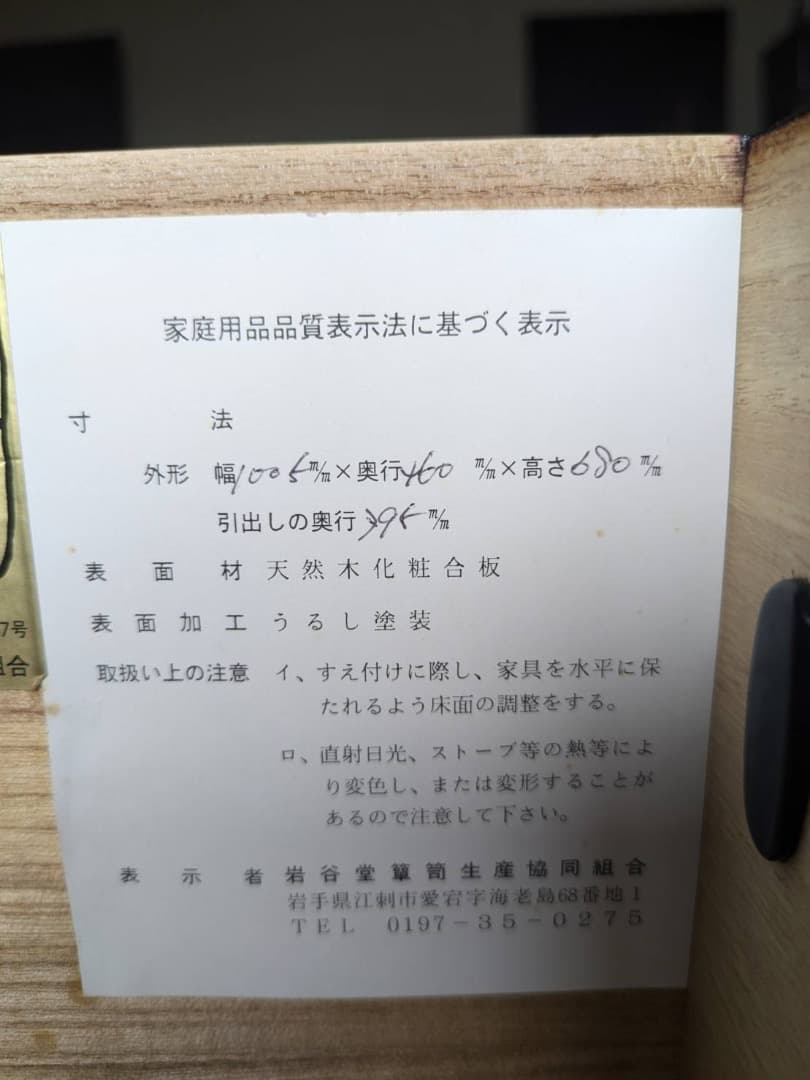 家庭用品品質表示法に基づく表示
寸法
外形 幅1005m/m×奥行460m/m×高さ680m/m
引出しの奥行395m/m
表面材 天然木化粧合板
表面加工 うるし塗装
取扱い上の注意 イ、すえ付けに際し、家具を水平に保
たれるよう床面の調整をする。
ロ、直射日光、ストーブ等の熱等によ
り変色し、または変形することが
あるので注意して下さい。
表示者 岩谷堂簞笥生産協同組合
岩手県江刺市愛宕字海老島68番地1
TEL 0197-35-0275
7号
組合